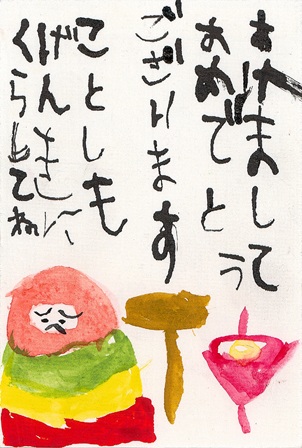 あけまして
おめでとう
ございます
ことしも
げんきに
くらしてね